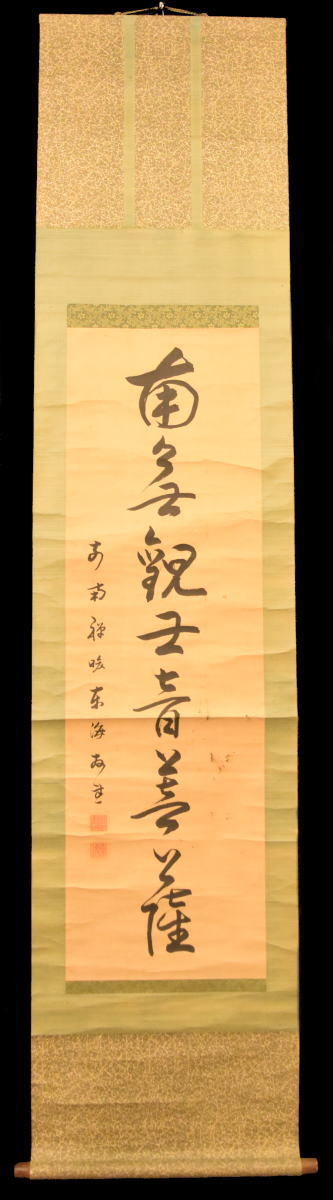 南無觀世音菩薩
前南禅 東海 書